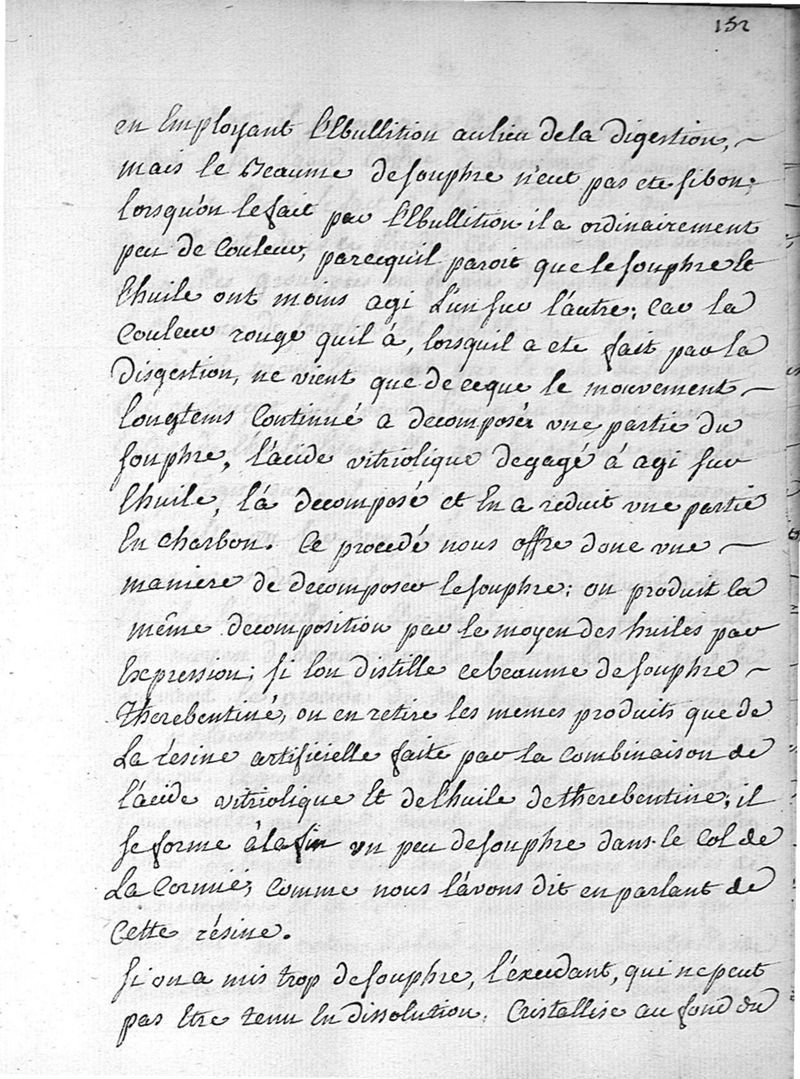 152
en Employant l'Ebullition aulieu dela digestion, ~
mais le Beaume de souphre n'eut pas eté si bon;
lorsqu'on le fait par l'Ebullition il a ordinairement
peu de Couleur, parcequ'il paroit que le souphre et
l'huile ont moins agi L'un sur l'autre; Car la
Couleur rouge quil à, lorsquil a eté fait par la
Disgestion, ne vient que de ceque le mouvement ~
Longtems Continué a decomposér une partie du
souphre, l'acide vitriolique degagé à agi sur
l'huile, l'à decomposé et En a reduit une partie
En charbon. Ce procedé nous offre donc une ~
maniere de decomposer le souphre; on produit la
même decomposition par le moyen des huiles par
Expression; si lon distille ce beaume de souphre ~
Therebentiné, on en retire les memes produits que de
La résine artificielle faite par la Combinaison de
l'acide vitriolique Et de l'huile de therebentine; il
se forme à la fin un peu de souphre dans le Col de
La Cornüe, Comme nous l'avons dit en parlant de
Cette résine.
Si on a mis trop de souphre, l'éxcedant, qui ne peut
pas Etre tenu En dissolution, Cristallise au fond du